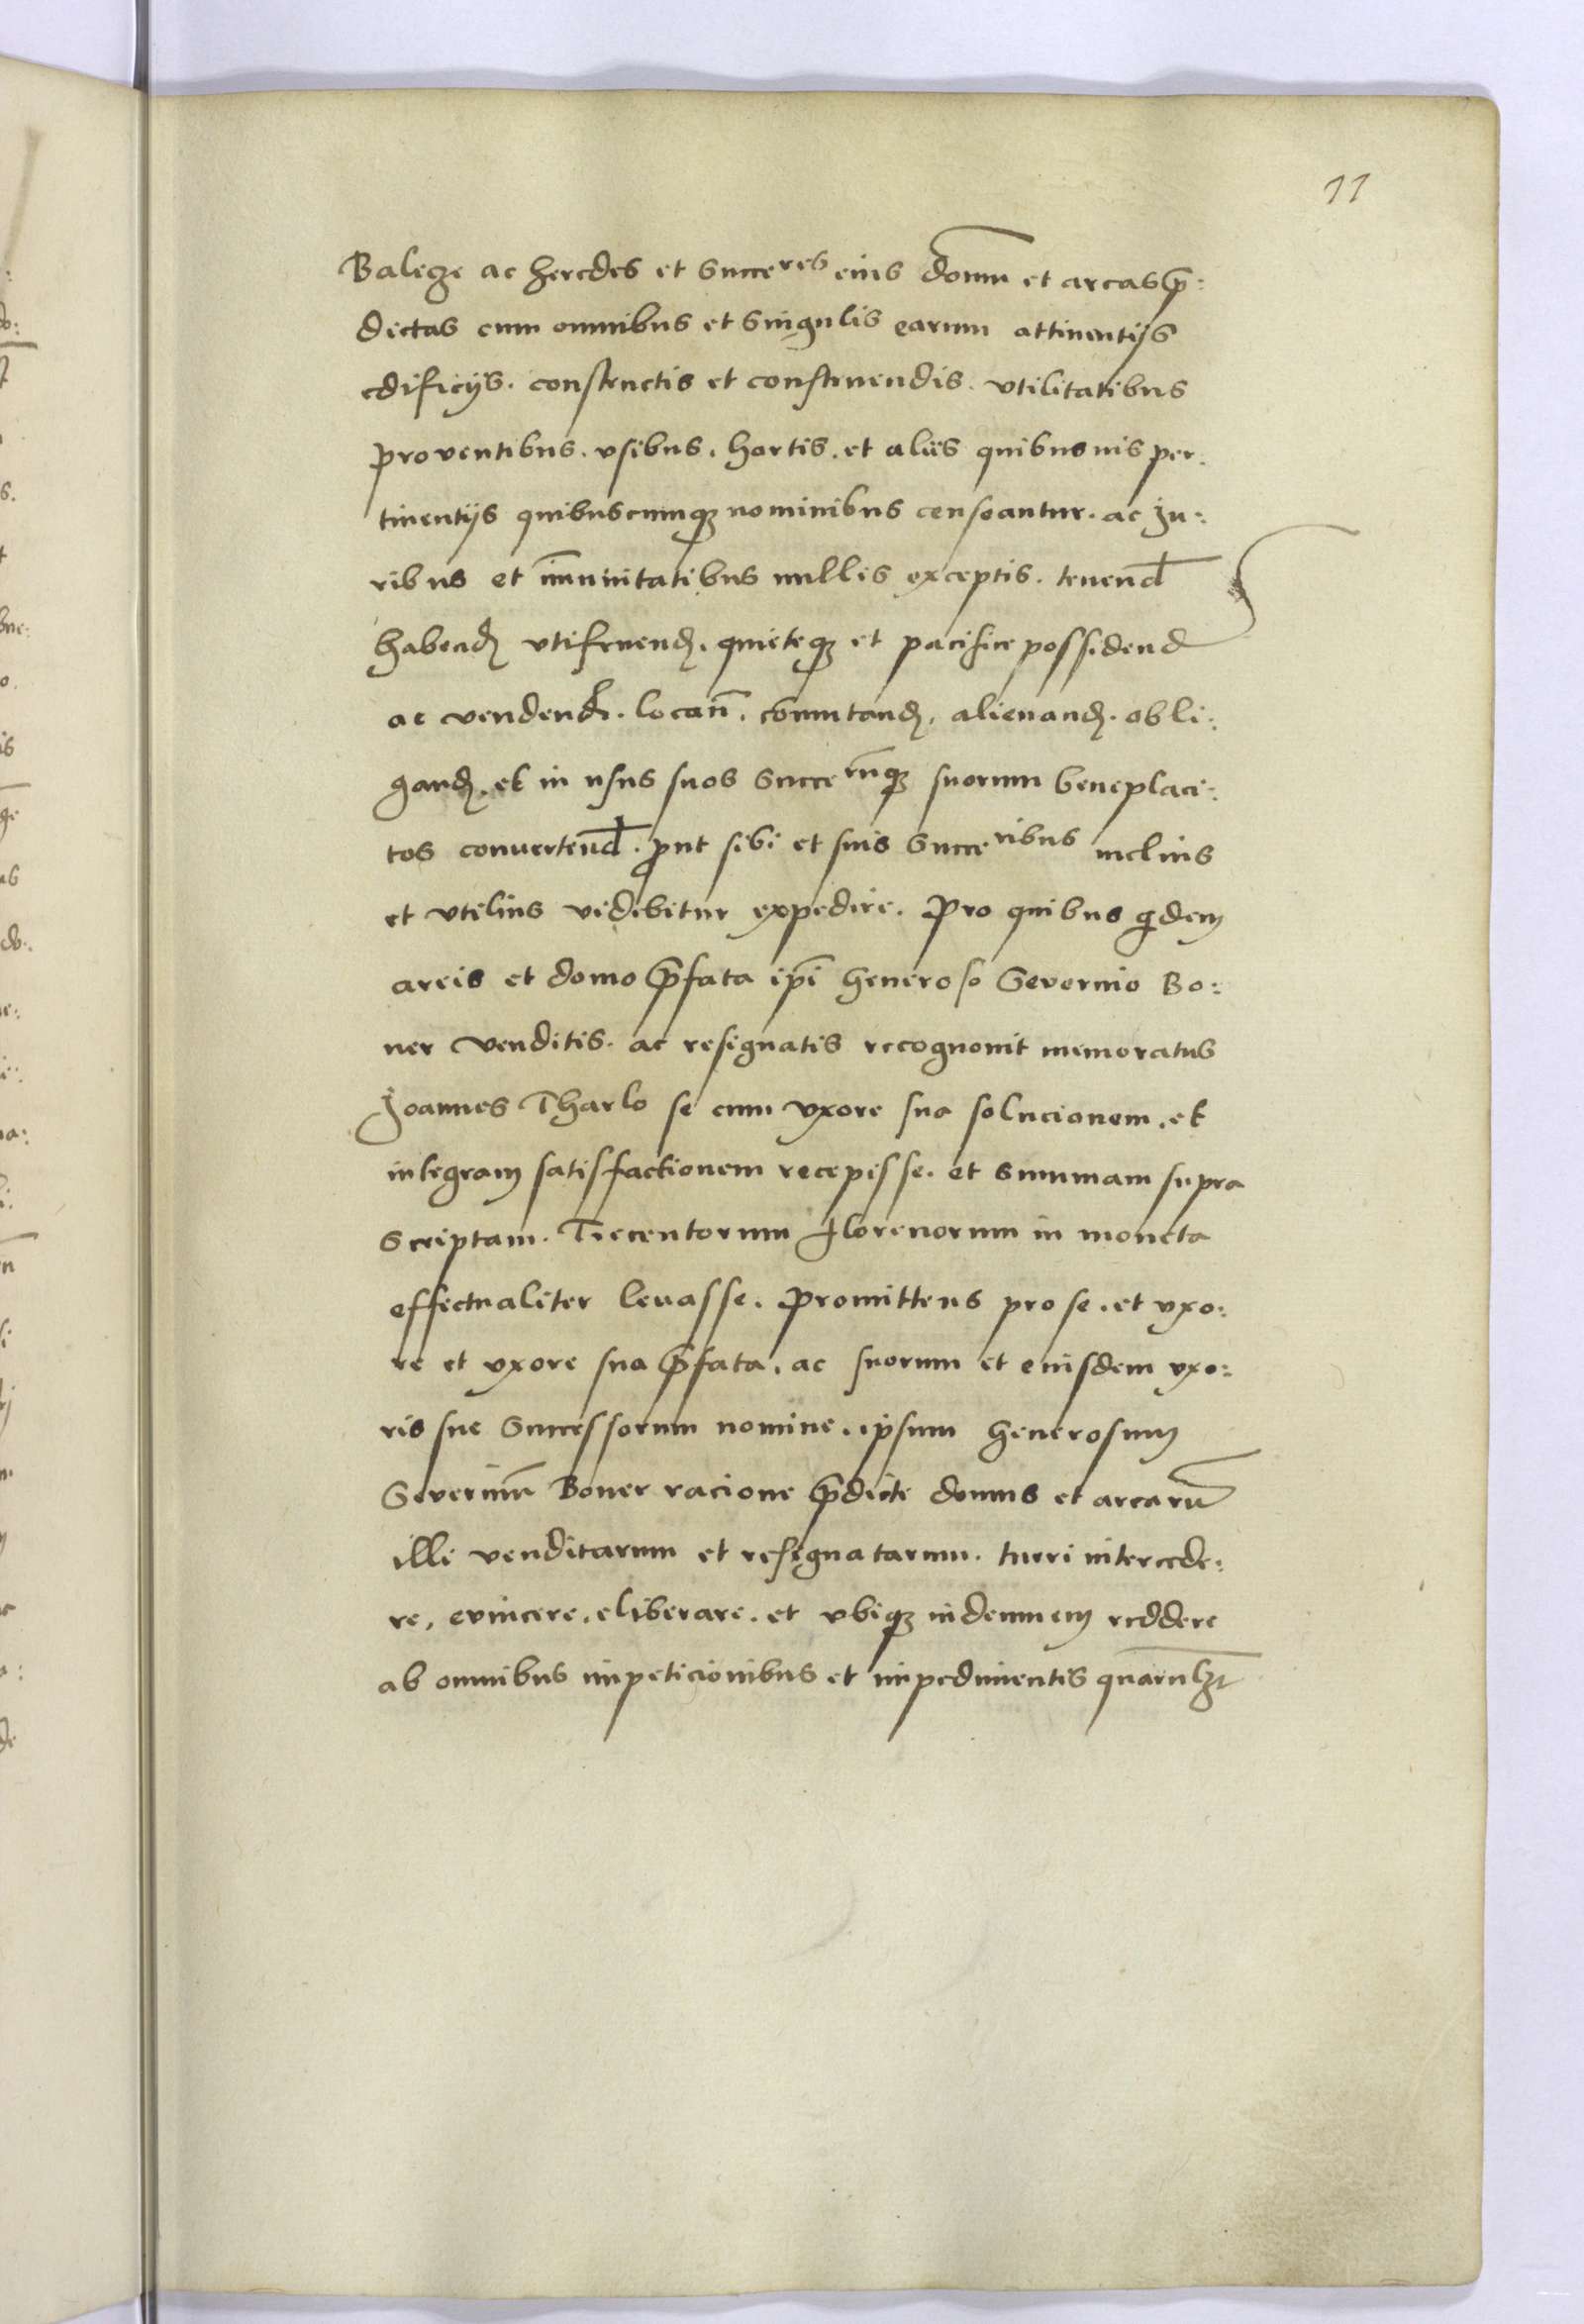 11
Balicze ac heredes et Succeres eius domū et areas p̄:
dictas cum omnibus et Singulis earum attinentijs
edificijs. constructis et construendis. vtilitatibus
proventibus. vsibus. hortis. et alijs quibusuis per:
tinentijs quibuscumqꝫ nominibus censeantur. ac Ju:
ribus et īmunitatibus nullis exceptis. tenend
habend vtifruend. quieteqꝫ et pacifice possidend
ac vendend. locan̄. cōmutand. alienand. obli:
gand. et in vsus suos Succerūqꝫ suorum beneplaci:
tos convertend. ꝓut sibi et suis Succeribus melius
et vtilius videbitur expedire. Pro quibus qdem
areis et domo p̄fata ip̄i Generoso Severino Bo:
ner venditis. ac resignatis recognouit memoratus
Joannes Tharlo se cum vxore sua solucionem. et
integram satisfactionem recepisse. et Summam supra
Scriptam. Trecentorum florenorum in moneta
effectualiter leuasse. Promittens pro se. et vxo:
re et vxore sua p̄fata. ac suorum et eiusdem vxo:
ris sue Successorum nomine. ipsum Generosum
Severinū Boner racione p̄dicte domus et arearū
illi venditarum et resignatarum. tueri intercede:
re, evincere. eliberare. et vbiqꝫ indemnem reddere
ab omnibus impeticionibus et impedimentis quarūlꝫt